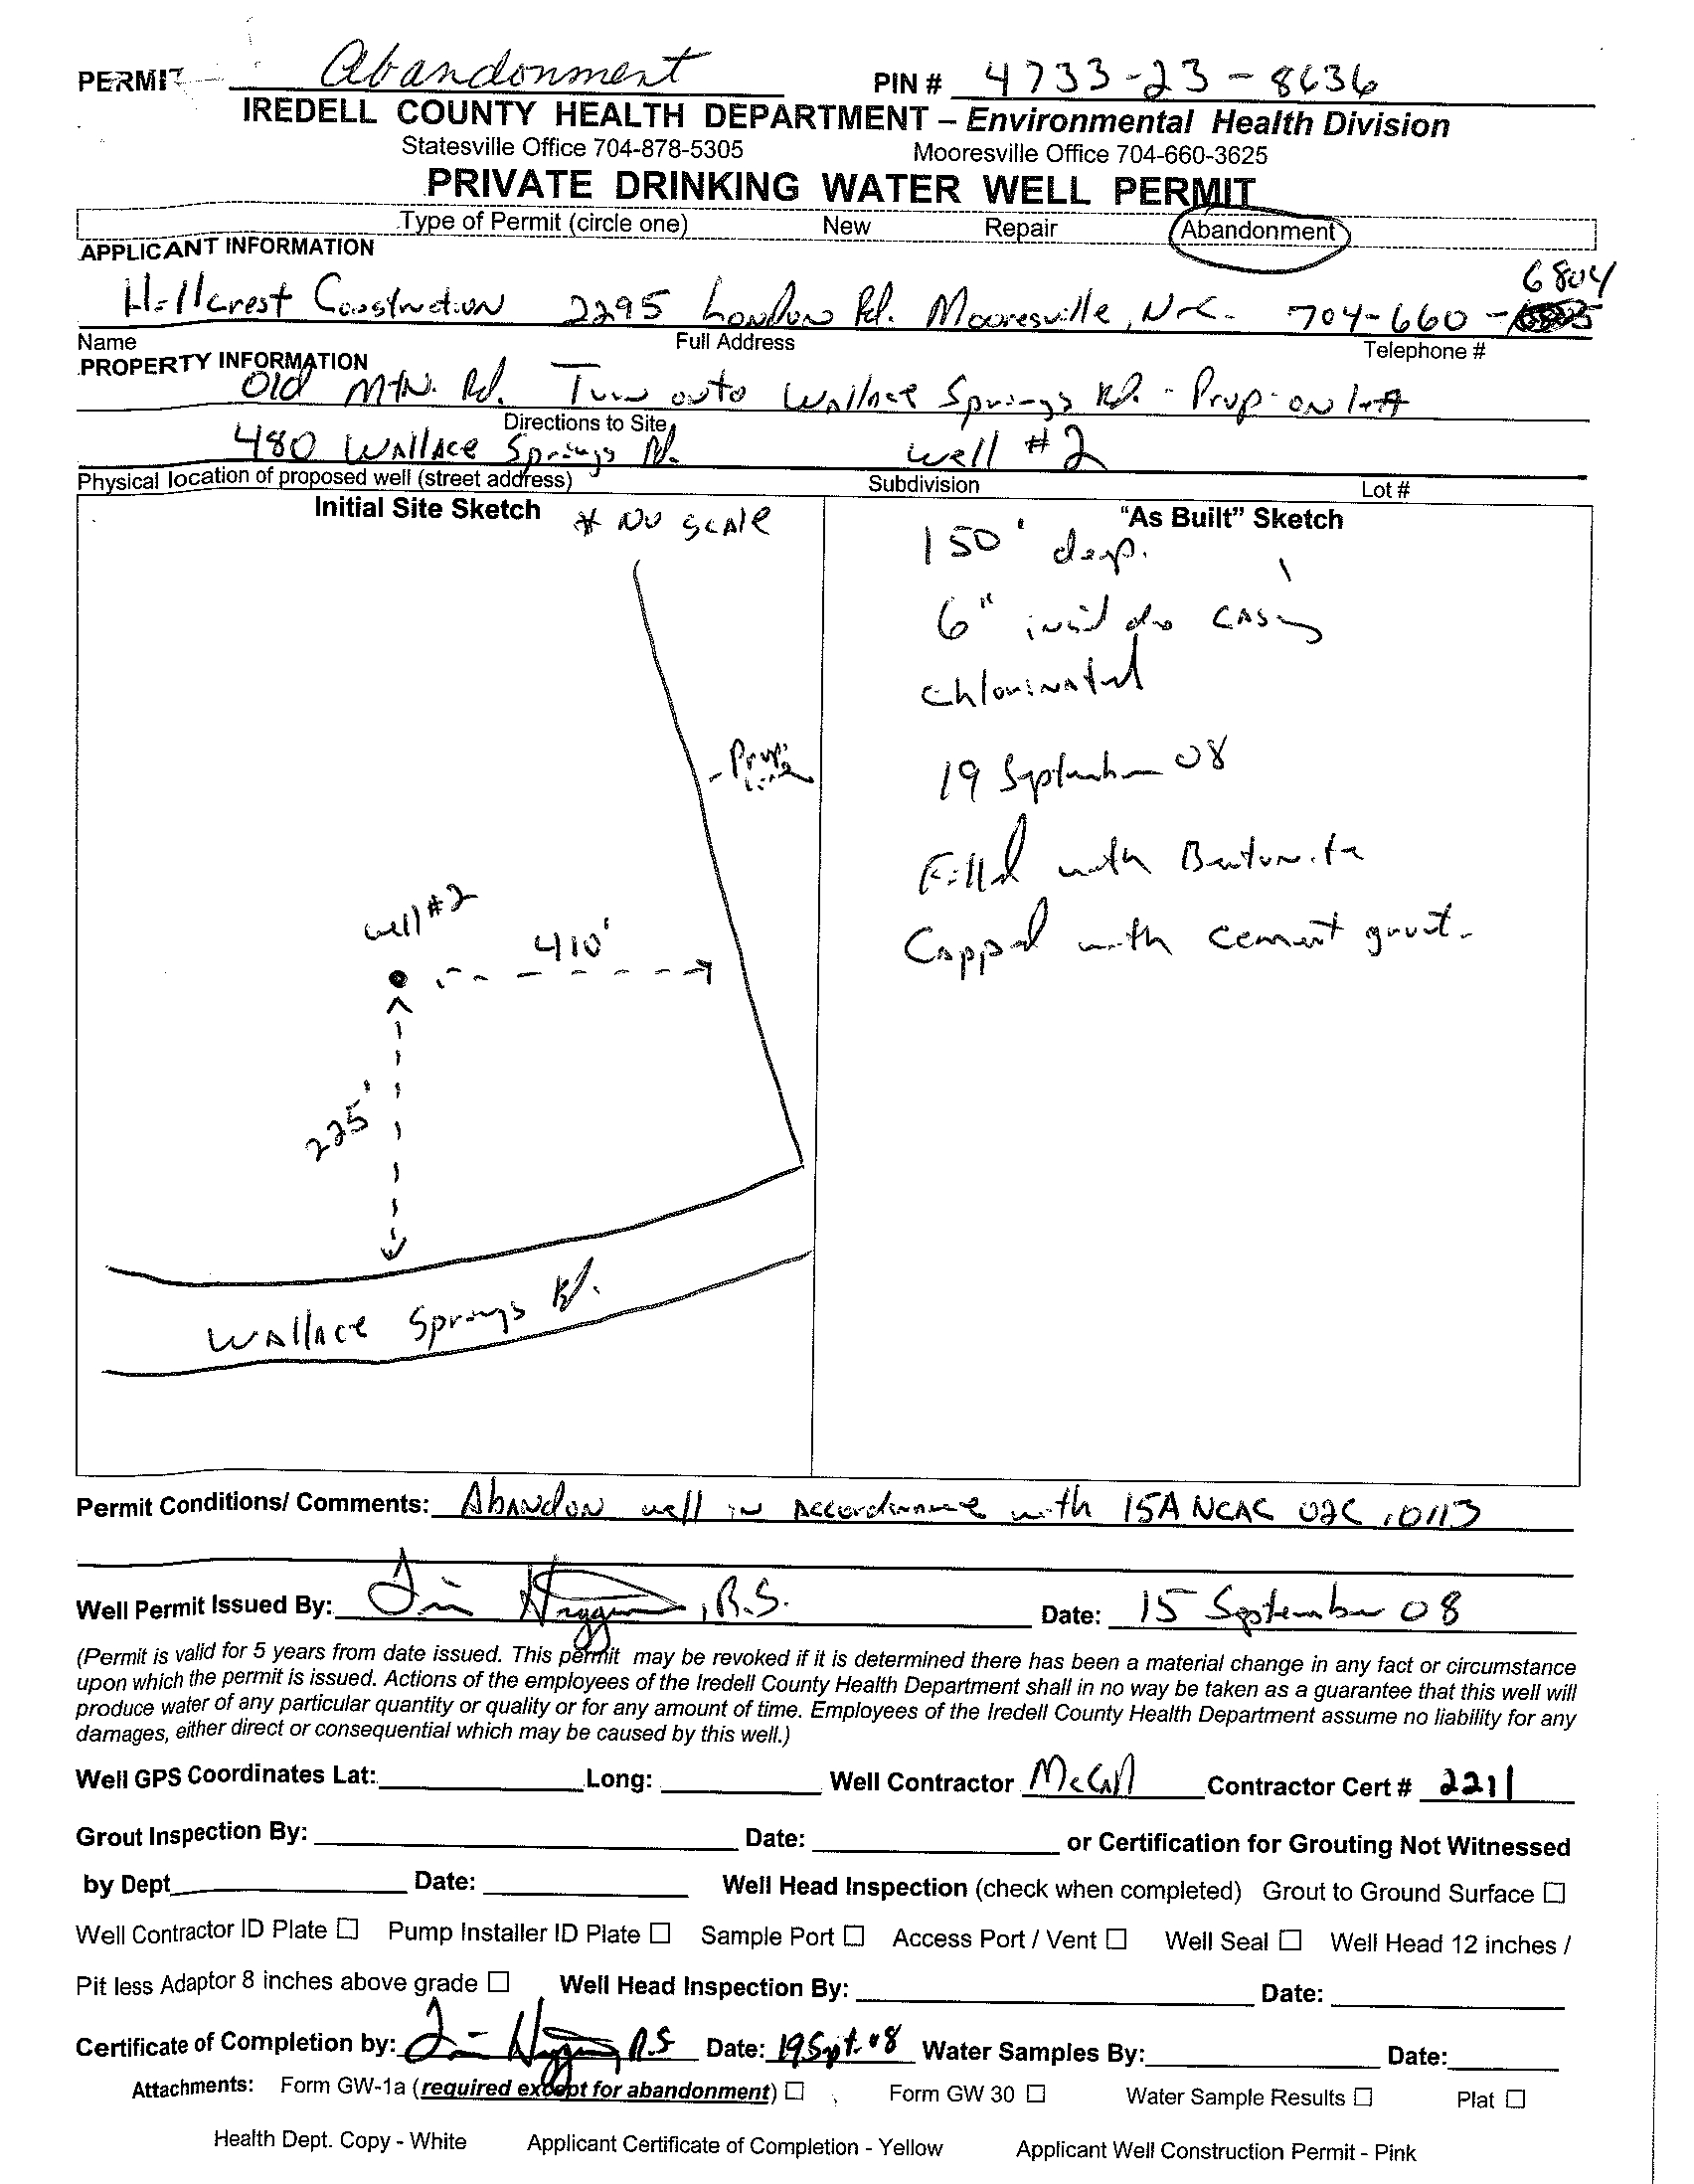 PERMIT Abandonment PIN # 4733-23-8636
IREDELL COUNTY HEALTH DEPARTMENT – Environmental Health Division
Statesville Office 704-878-5305 Mooresville Office 704-660-3625
PRIVATE DRINKING WATER WELL PERMIT
Type of Permit (circle one) New Repair Abandonment
APPLICANT INFORMATION
6804
Hillcrest Construction 2295 London Rd. Mooresville, N.C. 704-660-
Name Full Address Telephone #
PROPERTY INFORMATION
Old Mtn. Rd. Turn onto Wallace Springs Rd. - Prop. on left
Directions to Site
480 Wallace Springs Rd. well #2
Physical location of proposed well (street address) Subdivision Lot #
Initial Site Sketch * No scale
"As Built" Sketch
150' deep.
6" inside casing
chlorinated
19 September 08
Filled with Bentonite
Capped with cement grout.
Prop. line
well #2
410'
225'
Wallace Springs Rd.
Permit Conditions/ Comments: Abandon well in accordance with 15A NCAC 02C .0113
Well Permit Issued By: , R.S. Date: 15 September 08
(Permit is valid for 5 years from date issued. This permit may be revoked if it is determined there has been a material change in any fact or circumstance
upon which the permit is issued. Actions of the employees of the Iredell County Health Department shall in no way be taken as a guarantee that this well will
produce water of any particular quantity or quality or for any amount of time. Employees of the Iredell County Health Department assume no liability for any
damages, either direct or consequential which may be caused by this well.)
Well GPS Coordinates Lat: Long: Well Contractor McCall Contractor Cert # 2211
Grout Inspection By: Date: or Certification for Grouting Not Witnessed
by Dept Date: Well Head Inspection (check when completed) Grout to Ground Surface ☐
Well Contractor ID Plate ☐ Pump Installer ID Plate ☐ Sample Port ☐ Access Port / Vent ☐ Well Seal ☐ Well Head 12 inches /
Pit less Adaptor 8 inches above grade ☐ Well Head Inspection By: Date:
Certificate of Completion by: R.S Date: 19 Sept. 08 Water Samples By: Date:
Attachments: Form GW-1a (required except for abandonment) ☐ Form GW 30 ☐ Water Sample Results ☐ Plat ☐
Health Dept. Copy - White Applicant Certificate of Completion - Yellow Applicant Well Construction Permit - Pink